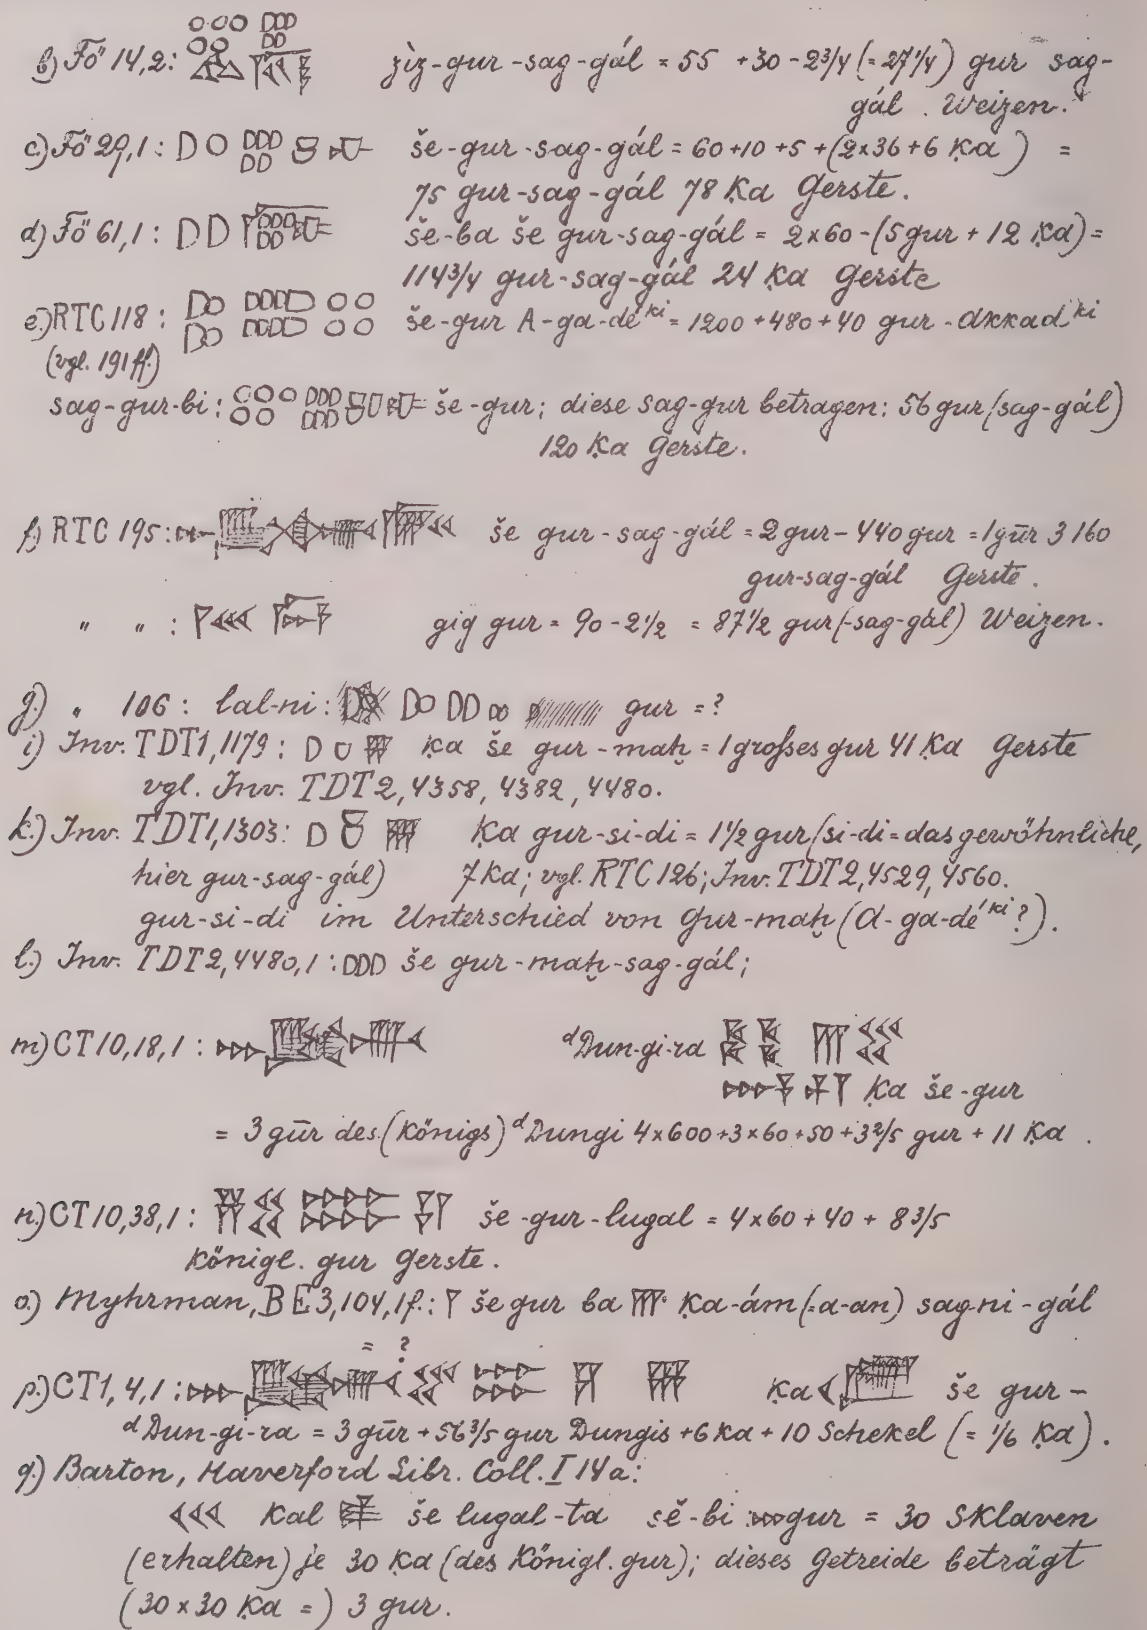 b) Fö 14,2: zíz-gur-sag-gál = 55 + 30 - 2 3/4 (= 27 1/4) gur sag-
gál. Weizen.
c) Fö 29,1: še-gur-sag-gál = 60+10+5+(2x36+6 Ḳa) =
75 gur-sag-gál 78 Ḳa Gerste.
d) Fö 61,1: še-ba še gur-sag-gál = 2x60-(5 gur + 12 Ḳa) =
114 3/4 gur-sag-gál 24 Ḳa Gerste
e) RTC 118: še-gur A-ga-dé ki = 1200 + 480 + 40 gur - Akkad ki
(vgl. 191 ff.)
sag-gur-bi: še-gur; diese sag-gur betragen: 56 gur (sag-gál)
120 Ḳa Gerste.
f) RTC 195: še gur-sag-gál = 2 gur - 440 gur = 1 gūr 3160
gur-sag-gál Gerste.
" " : gig gur = 90 - 2 1/2 = 87 1/2 gur (-sag-gál) Weizen.
g) " 106: lal-ni: gur = ?
i) Inv. TDT1, 1179: Ḳa še gur-maḫ = 1 großes gur 41 Ḳa Gerste
vgl. Inv. TDT2, 4358, 4382, 4480.
k.) Inv. TDT1, 1303: Ḳa gur-si-di = 1 1/2 gur (si-di = das gewöhnliche,
hier gur-sag-gál) 7 Ka; vgl. RTC 126; Inv. TDT2, 4529, 4560.
gur-si-di im Unterschied von gur-maḫ (A-ga-dé ki ?).
l.) Inv. TDT2, 4480,1: DDD še gur-maḫ-sag-gál;
m) CT10, 18,1: d Dun-gi-ra
Ḳa še-gur
= 3 gūr des (Königs) d Dungi 4x600+3x60+50+3 2/5 gur + 11 Ḳa.
n) CT10, 38,1: še-gur-lugal = 4x60 + 40 + 8 3/5
Königl. gur Gerste.
o.) Myhrman, BE 3, 104, 1f.: še gur ba Ḳa-ám (= a-an) sag-ni-gál
= ?
p.) CT1, 4,1: Ḳa še gur-
d Dun-gi-ra = 3 gūr + 56 3/5 gur Dungis + 6 Ka + 10 Schekel (= 1/6 Ḳa).
q.) Barton, Haverford Libr. Coll. I 14a:
Kal še lugal-ta sě-bi gur = 30 Sklaven
(erhalten) je 30 Ḳa (des Königl. gur); dieses Getreide beträgt
(30 x 30 Ḳa =) 3 gur.